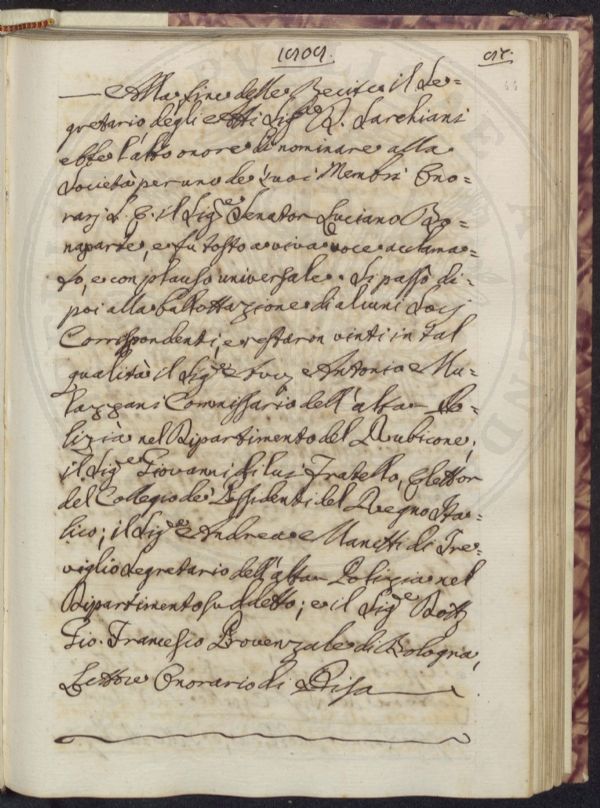 1809.
97.
Alla fine delle Recite il Se=
gretario degli Atti Sigr. D. Sarchiani
ebbe l'alto onore di nominare alla
Società per uno de' suoi Membri Ono=
rarj S. E. il Sigr. Senator Luciano Bo=
naparte, e fu tosto a viva voce acclama=
to, e con plauso universale. Si passò di=
poi alla ballottazione di alcuni Socj
Corrispondenti, e restaron vinti in tal
qualità il Sigr. Avv. Antonio Mu=
lazzani Commissario dell'alta Po=
lizia nel Dipartimento del Rubicone;
il Sigr. Giovanni di lui Fratello, Elettor
del Collegio de' Possidenti del Regno Ita=
lico; il Sigr. Andrea Manetti di Tre=
viglio Segretario dell'alta Polizia nel
Dipartimento suddetto; e il Sigr. Dott.
Gio. Francesco Provenzale di Bologna,
Lettore Onorario di Pisa